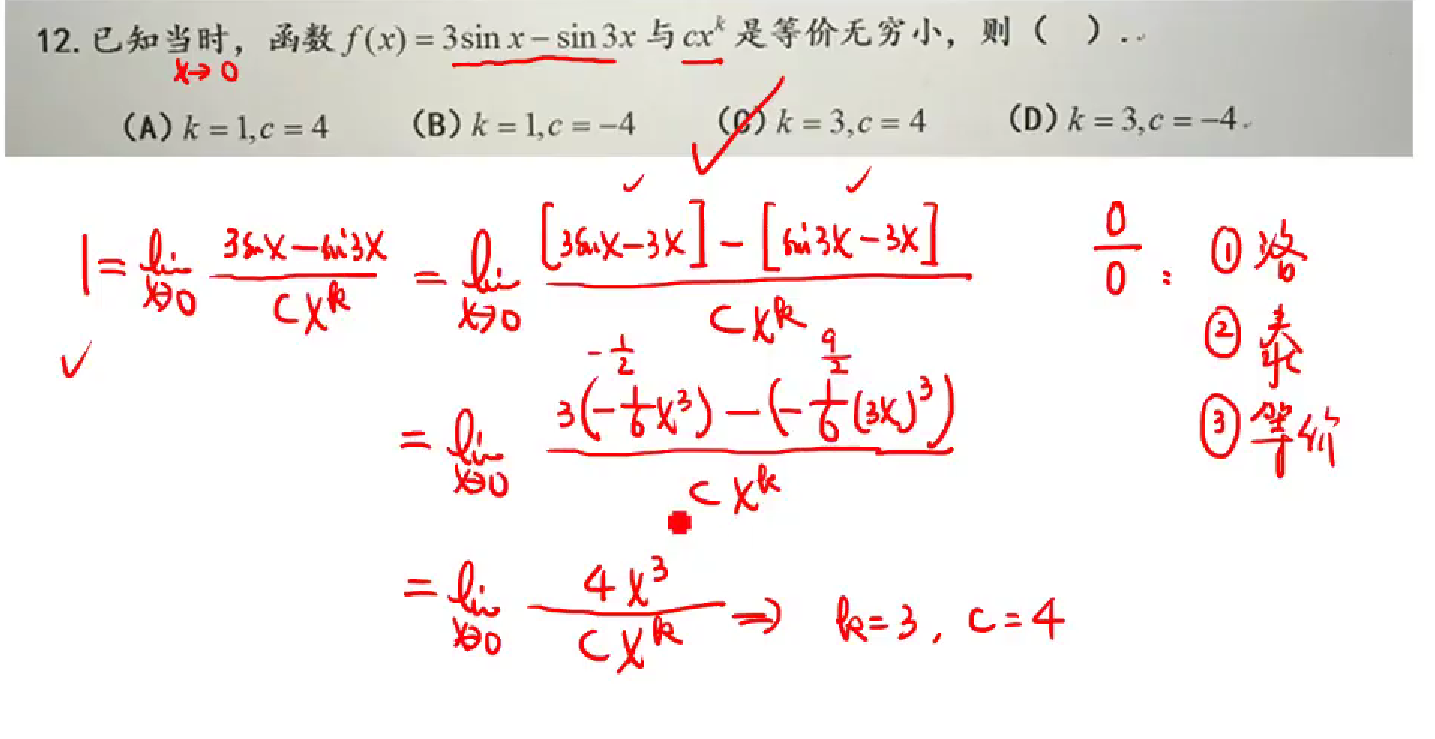 12. 已知当时，函数 f(x) = 3sin x − sin 3x 与 cx^k 是等价无穷小，则（ ）..
x→0
(A) k = 1, c = 4 (B) k = 1, c = −4 (C) k = 3, c = 4 (D) k = 3, c = −4.
1 = lim x→0 (3sinx − sin3x)/(cx^k) = lim x→0 ([3sinx − 3x] − [sin3x − 3x])/(cx^k)
0/0 : ① 洛
② 泰
③ 等价
−1/2 9/2
= lim x→0 (3(−1/6 x³) − (−1/6 (3x)³))/(cx^k)
= lim x→0 4x³/(cx^k) ⇒ k=3, c=4